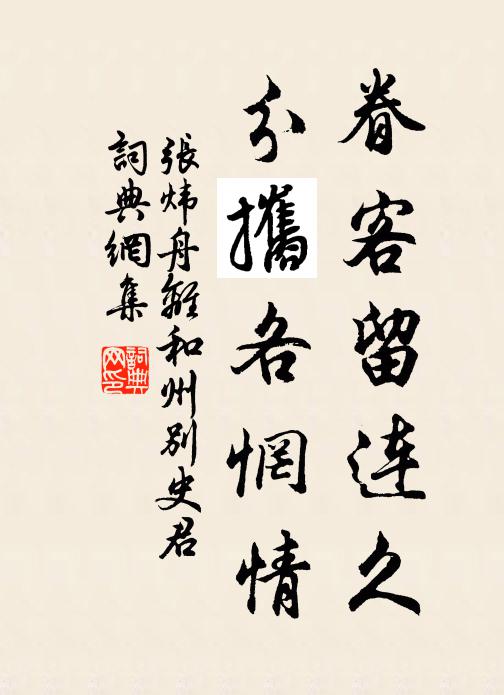 眷客留连久
分攜各惘情
張炜舟離和州别史君
詞典網集
詞典网印